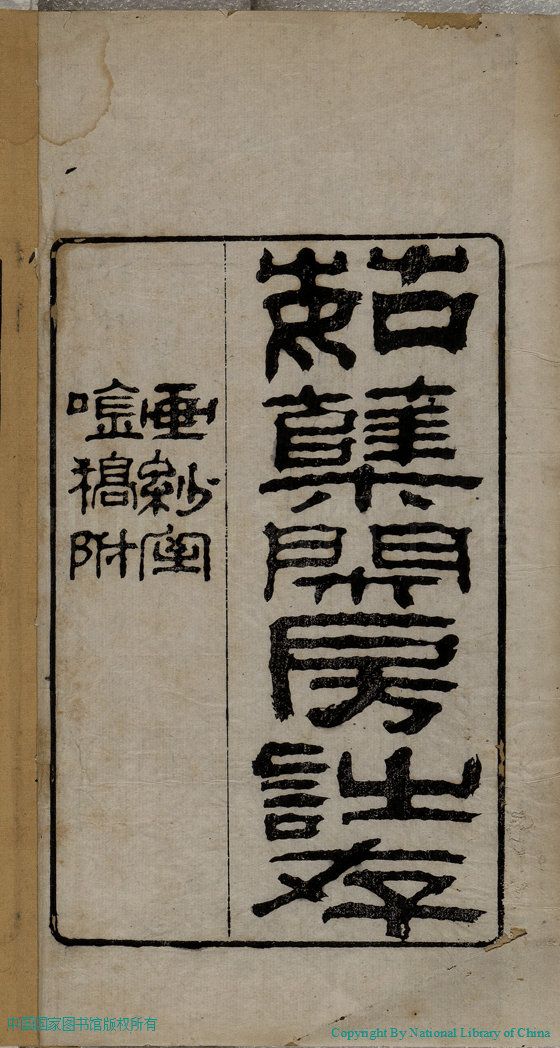 茹蘖閒房詩存
畫紗室
唫稿附
中国国家图书馆版权所有
Copyright By National Library of China